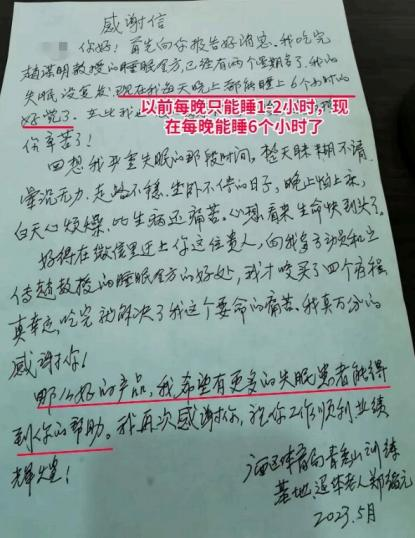 感谢信
你好！首先向你报告好消息，我吃完
赵洪明教授的睡眠全方，已经有两个星期了，我的
失眠没复发，现在我每天晚上都能睡上6个小时的
好觉了。
以前每晚只能睡1-2小时，现
在每晚能睡6个小时了
你辛苦了！
回想我严重失眠的那段时间，整天眯糊不清
晕沉无力，走路不稳，坐卧不停的日子，晚上怕上床，
白天心烦燥，比生病还痛苦。心想看来生命快到头了。
好得在微信里迁上你这位贵人，向我多方动员和宣
传赵教授的睡眠全方的好处，我才购买了四个疗程
真幸运，吃完就解决了我这个要命的痛苦。我真万分的
感谢你！
那么好的产品，我希望有更多的失眠患者能得
到你的帮助。我再次感谢你，祝你工作顺利业绩
辉煌！
体育局青秀山训练
基地退休老人郑
2023.5月